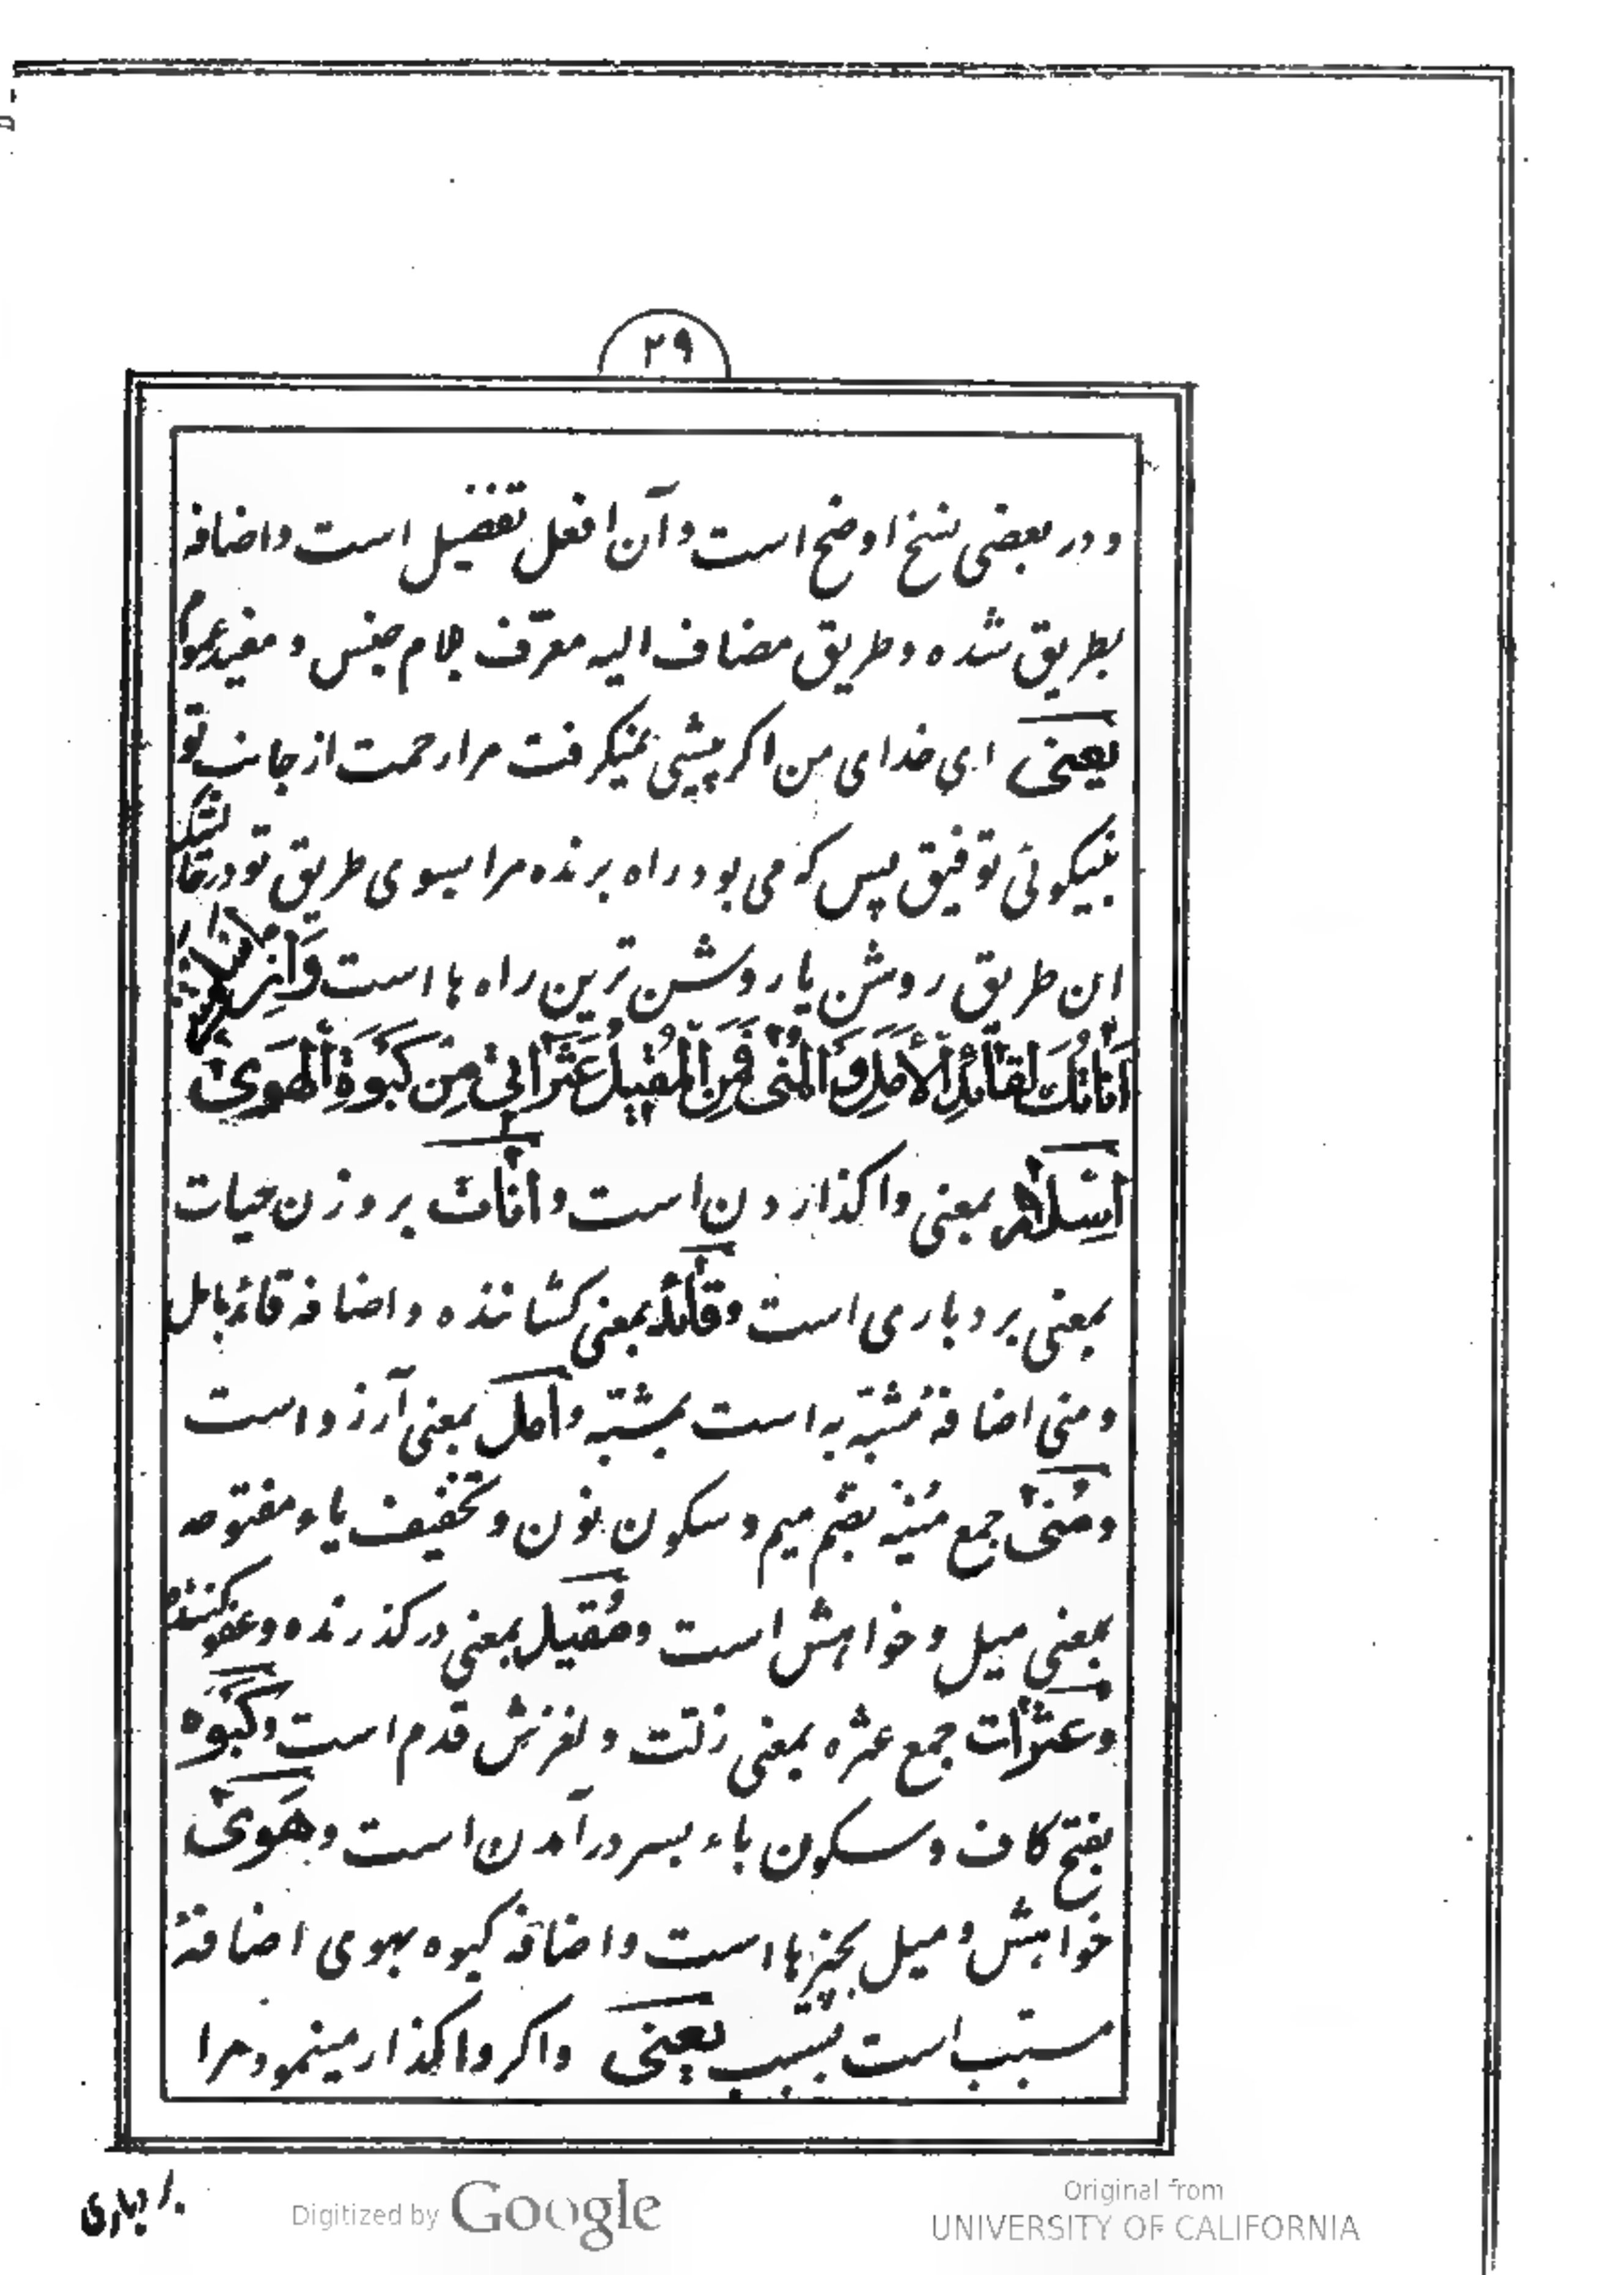 ۲۹
و در بعضی نسخ اوضح است و آن افعل تفضیل است و اضافه
بطریق شده و طریق مضاف الیه معرّف بلام جنس و مفید عموم
یعنی ای خدای من اکر پیشی نمیکرفت مرا رحمت از جانب تو
بنیکوئی توفیق پس که می بود راه برنده مرا بسوی طریق تو در
این طریق روشن یا روشن ترین راه ها است وَاِنْ
اَنَاتُكَ لِقَائِدِ الْاَمَلِ وَ الْمُنٰی فَمَنِ الْمُقِیلُ عَثَرَاتِی مِنْ كَبْوَةِ الْهَوٰی
اِسْلَام بمعنی واکذاردن است و اَنَات بر وزن حیات
بمعنی بردباری است و قَائِد بمعنی کشاننده و اضافه قائد بامل
و منی اضافهٔ مُشبّه به است بمشبّه و اَمَل بمعنی آرزو است
و مُنٰی جمع مُنیَه بضمّ میم و سکون نون و تخفیف یاء مفتوحه
بمعنی میل و خواهش است و مُقیل بمعنی درکذرنده و عفو کننده
و عَثَرَات جمع عثره بمعنی زلّت و لغزش قدم است و كَبْوَه
بفتح کاف و سکون باء بسر درآمدن است و هَوٰی
خواهش و میل بچیزها است و اضافهٔ کبوه بهوی اضافهٔ
مسبّب است بسبب یعنی و اکر واکذار مینمود مرا
بردباری
Digitized by Google
Original from
UNIVERSITY OF CALIFORNIA